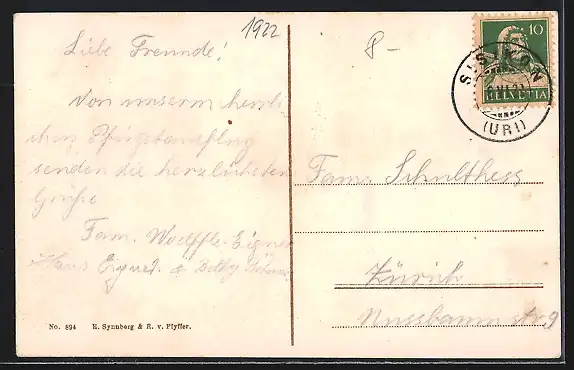 1922
8-
Liebe Freunde!
Von unserm herrli
chen Pfingstausflug
senden die herzlichsten
Grüße
Fam. Woelffle-Eigner
Hans Eigner & Betty
10
HELVETIA
SISIKON
(URI)
Fam. Schulthess
Zürich
Nussbaumstr. 9
No. 894 E. Synnberg & R. v. Pfyffer.